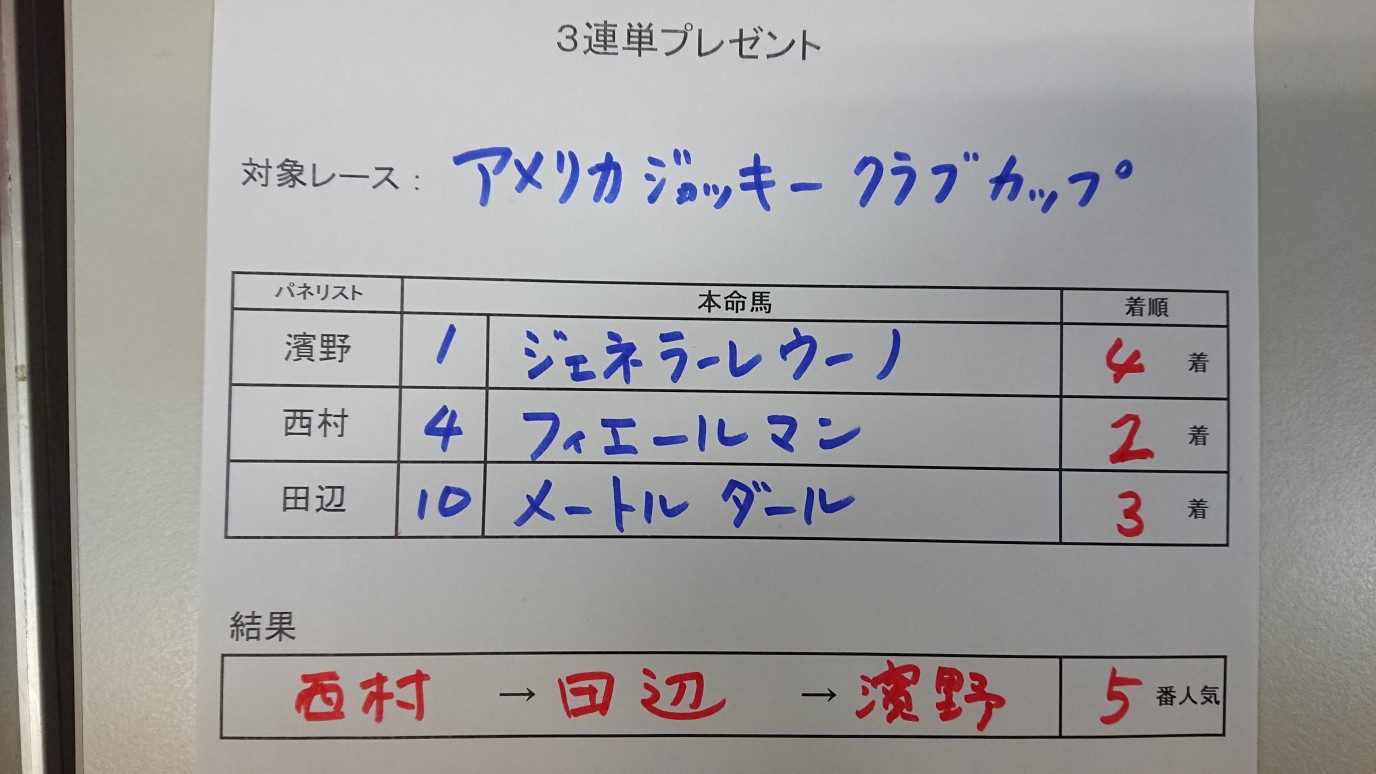 ３連単プレゼント
対象レース： アメリカジョッキークラブカップ
パネリスト 本命馬 着順
濱野 1 ジェネラーレウーノ 4 着
西村 4 フィエールマン 2 着
田辺 10 メートルダール 3 着
結果
西村 → 田辺 → 濱野 5 番人気